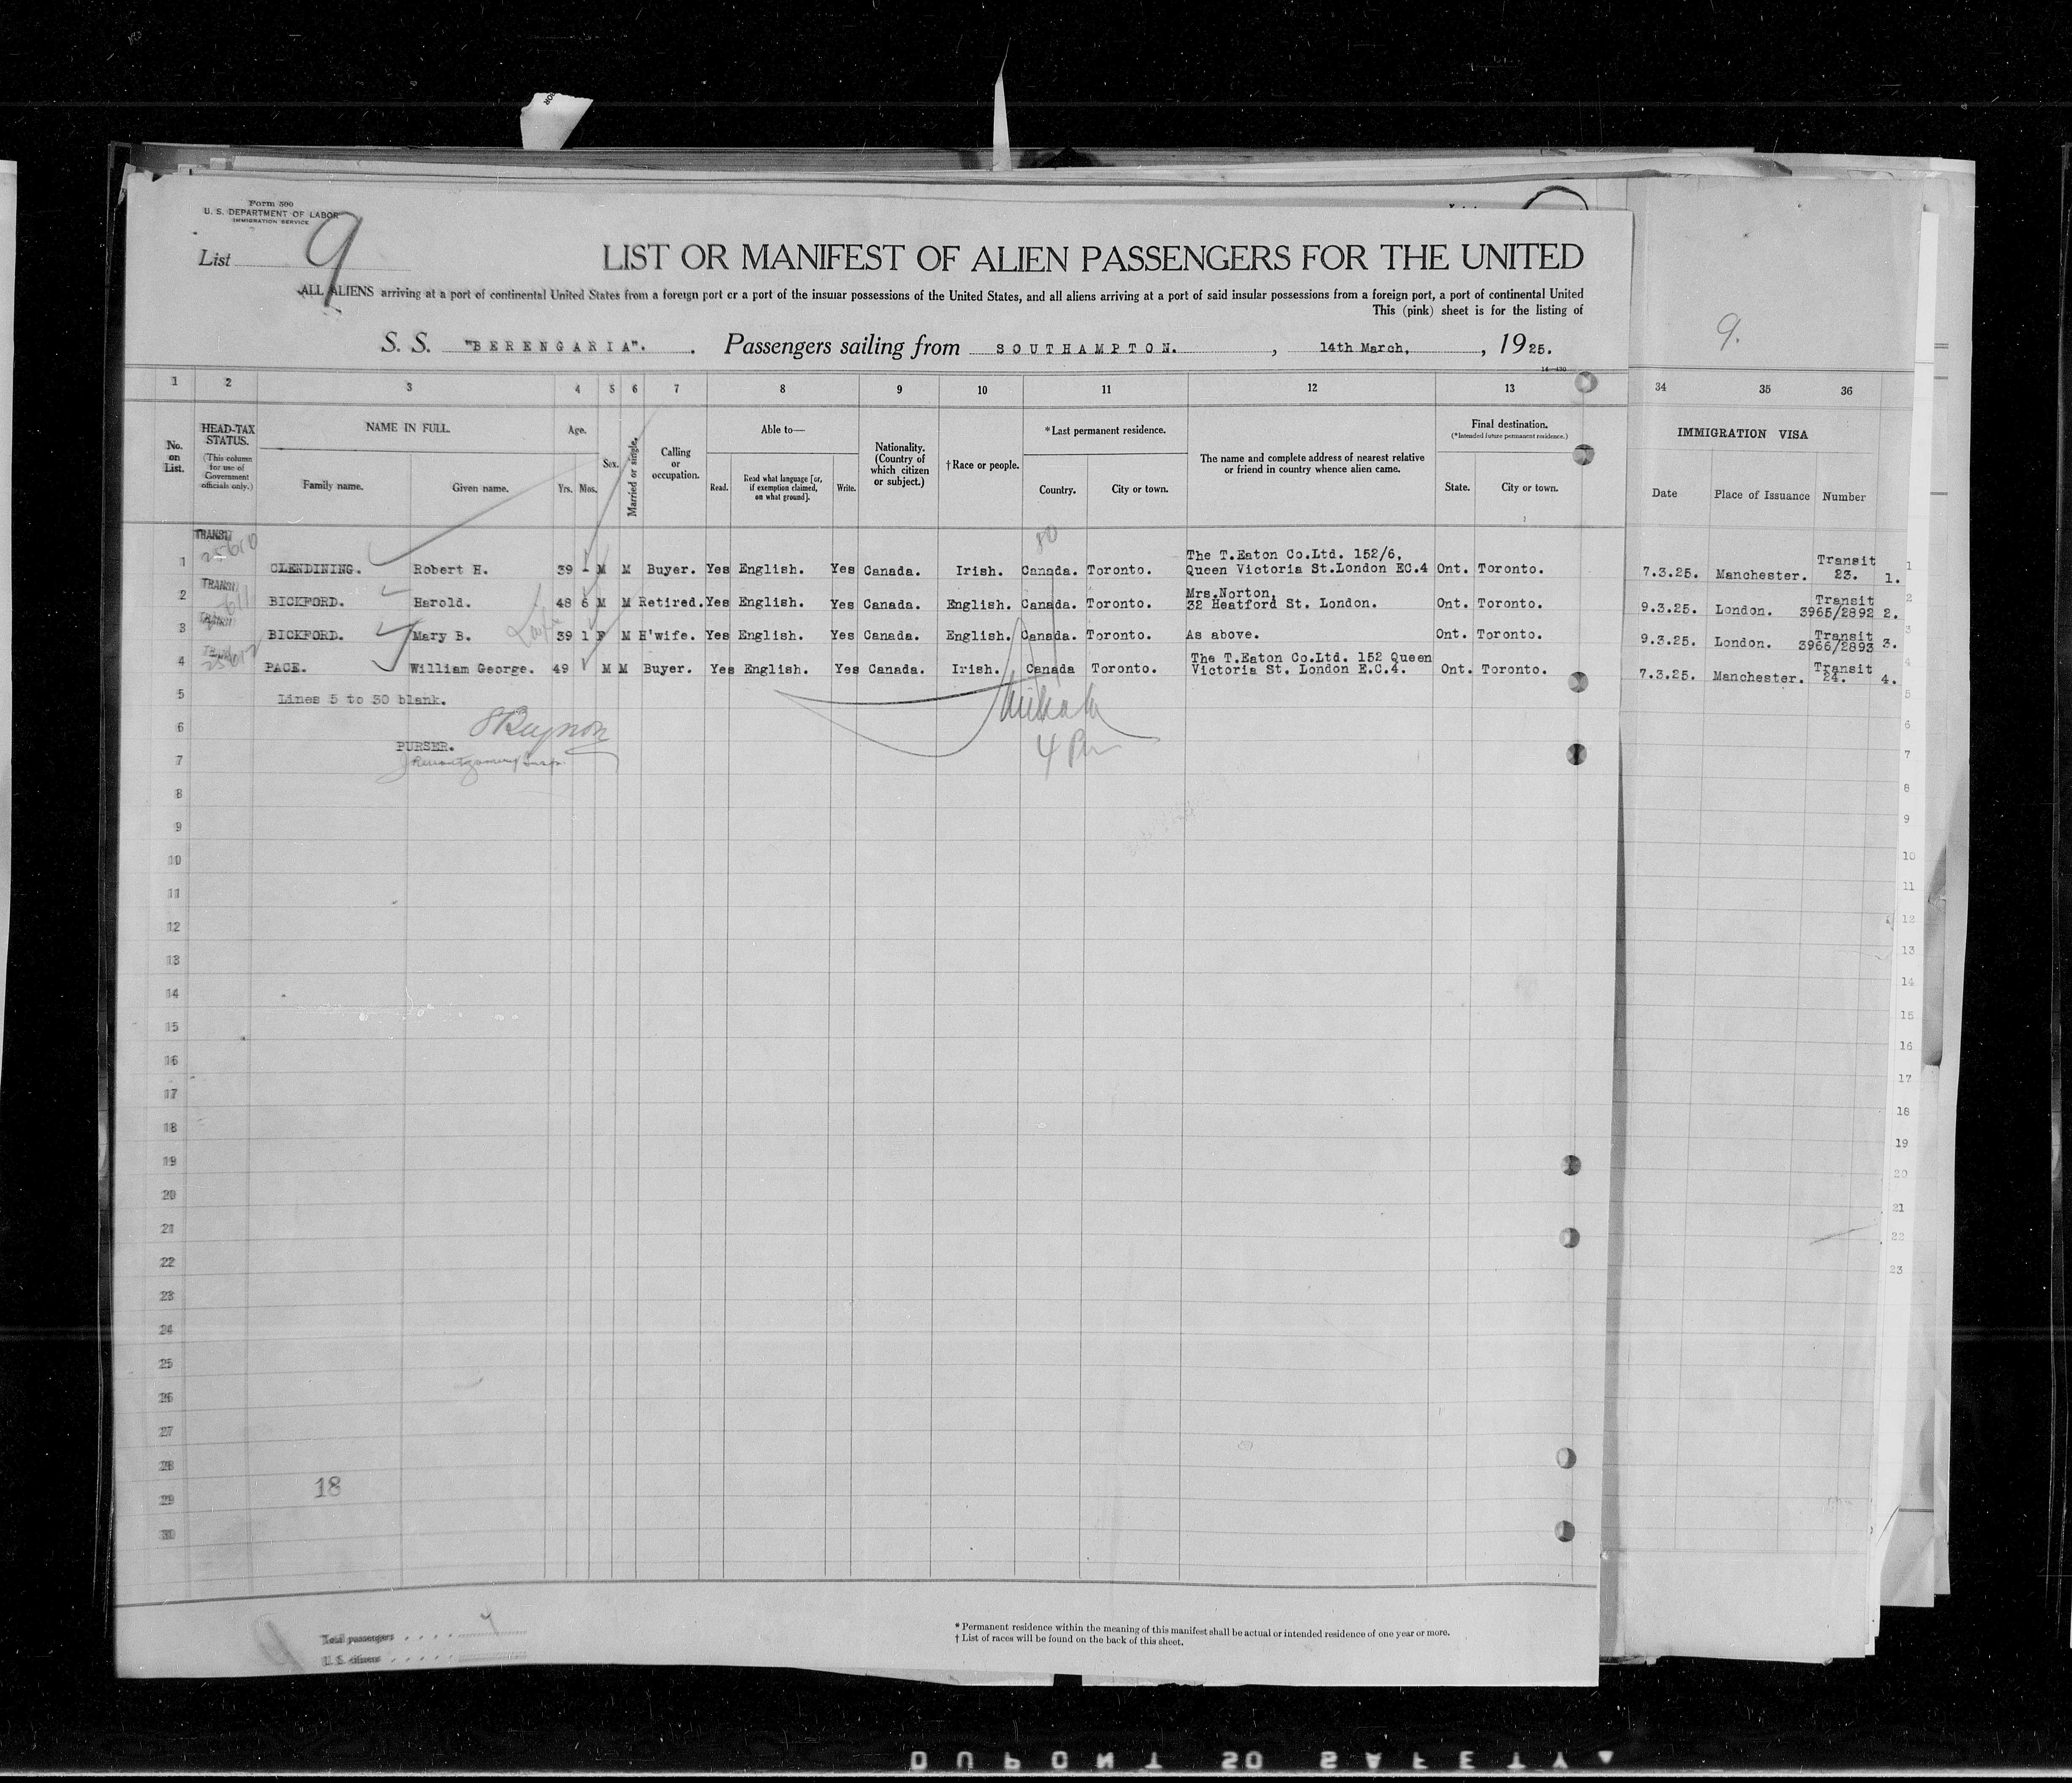 Form 500
U. S. DEPARTMENT OF LABOR
IMMIGRATION SERVICE
List 9
LIST OR MANIFEST OF ALIEN PASSENGERS FOR THE UNITED
ALL ALIENS arriving at a port of continental United States from a foreign port or a port of the insular possessions of the United States, and all aliens arriving at a port of said insular possessions from a foreign port, a port of continental United
This (pink) sheet is for the listing of
9.
S. S. "BERENGARIA". Passengers sailing from SOUTHAMPTON. , 14th March, , 1925.
14—430
1 2 3 4 5 6 7 8 9 10 11 12 13 34 35 36
No. on List.
HEAD-TAX STATUS.
(This column for use of Government officials only.)
NAME IN FULL.
Family name. Given name.
Age.
Yrs. Mos.
Sex.
Married or single.
Calling or occupation.
Able to—
Read. Read what language [or, if exemption claimed, on what ground]. Write.
Nationality. (Country of which citizen or subject.)
†Race or people.
*Last permanent residence.
Country. City or town.
The name and complete address of nearest relative or friend in country whence alien came.
Final destination.
(*Intended future permanent residence.)
State. City or town.
IMMIGRATION VISA
Date Place of Issuance Number
TRANSIT
25610
80
The T.Eaton Co.Ltd. 152/6, Transit
1 CLENDINING. Robert H. 39 - M M Buyer. Yes English. Yes Canada. Irish. Canada. Toronto. Queen Victoria St.London EC.4 Ont. Toronto. 7.3.25. Manchester. 23. 1.
TRANSIT Mrs.Norton, Transit
2 611 BICKFORD. Harold. 48 6 M M Retired. Yes English. Yes Canada. English. Canada. Toronto. 32 Heatford St. London. Ont. Toronto. 9.3.25. London. 3965/2892 2.
TRANSIT Transit
3 BICKFORD. Mary B. 39 1 F M H'wife. Yes English. Yes Canada. English. Canada. Toronto. As above. Ont. Toronto. 9.3.25. London. 3966/2893 3.
The T.Eaton Co.Ltd. 152 Queen Transit
4 25612 PACE. William George. 49 M M Buyer. Yes English. Yes Canada. Irish. Canada Toronto. Victoria St. London E.C.4. Ont. Toronto. 7.3.25. Manchester. 24. 4.
5 Lines 5 to 30 blank. 5
6 6
PURSER.
7 7
4 Pm
8 8
9 9
10 10
11 11
12 12
13 13
14 14
15 15
16 16
17 17
18 18
19 19
20 20
21 21
22 22
23 23
24
25
26
27
28
29
18
30
Total passengers 4
U. S. citizens
* Permanent residence within the meaning of this manifest shall be actual or intended residence of one year or more.
† List of races will be found on the back of this sheet.
DUPONT SO SAFETY